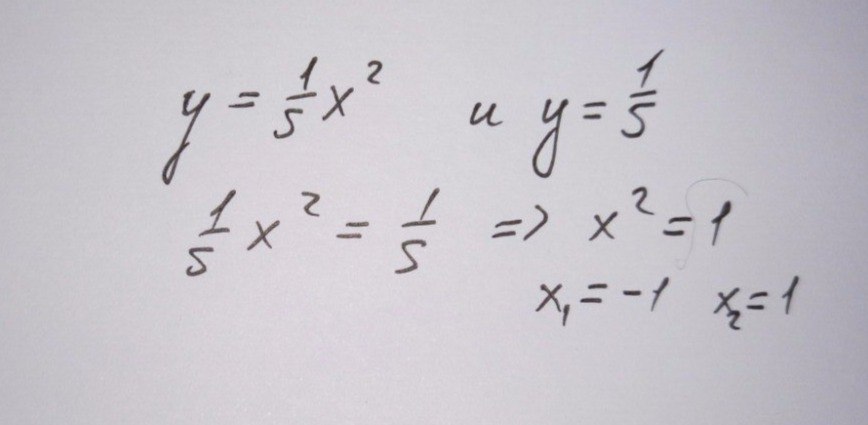 y = 1/5 x² и y = 1/5
1/5 x² = 1/5 => x² = 1
x₁ = -1 x₂ = 1